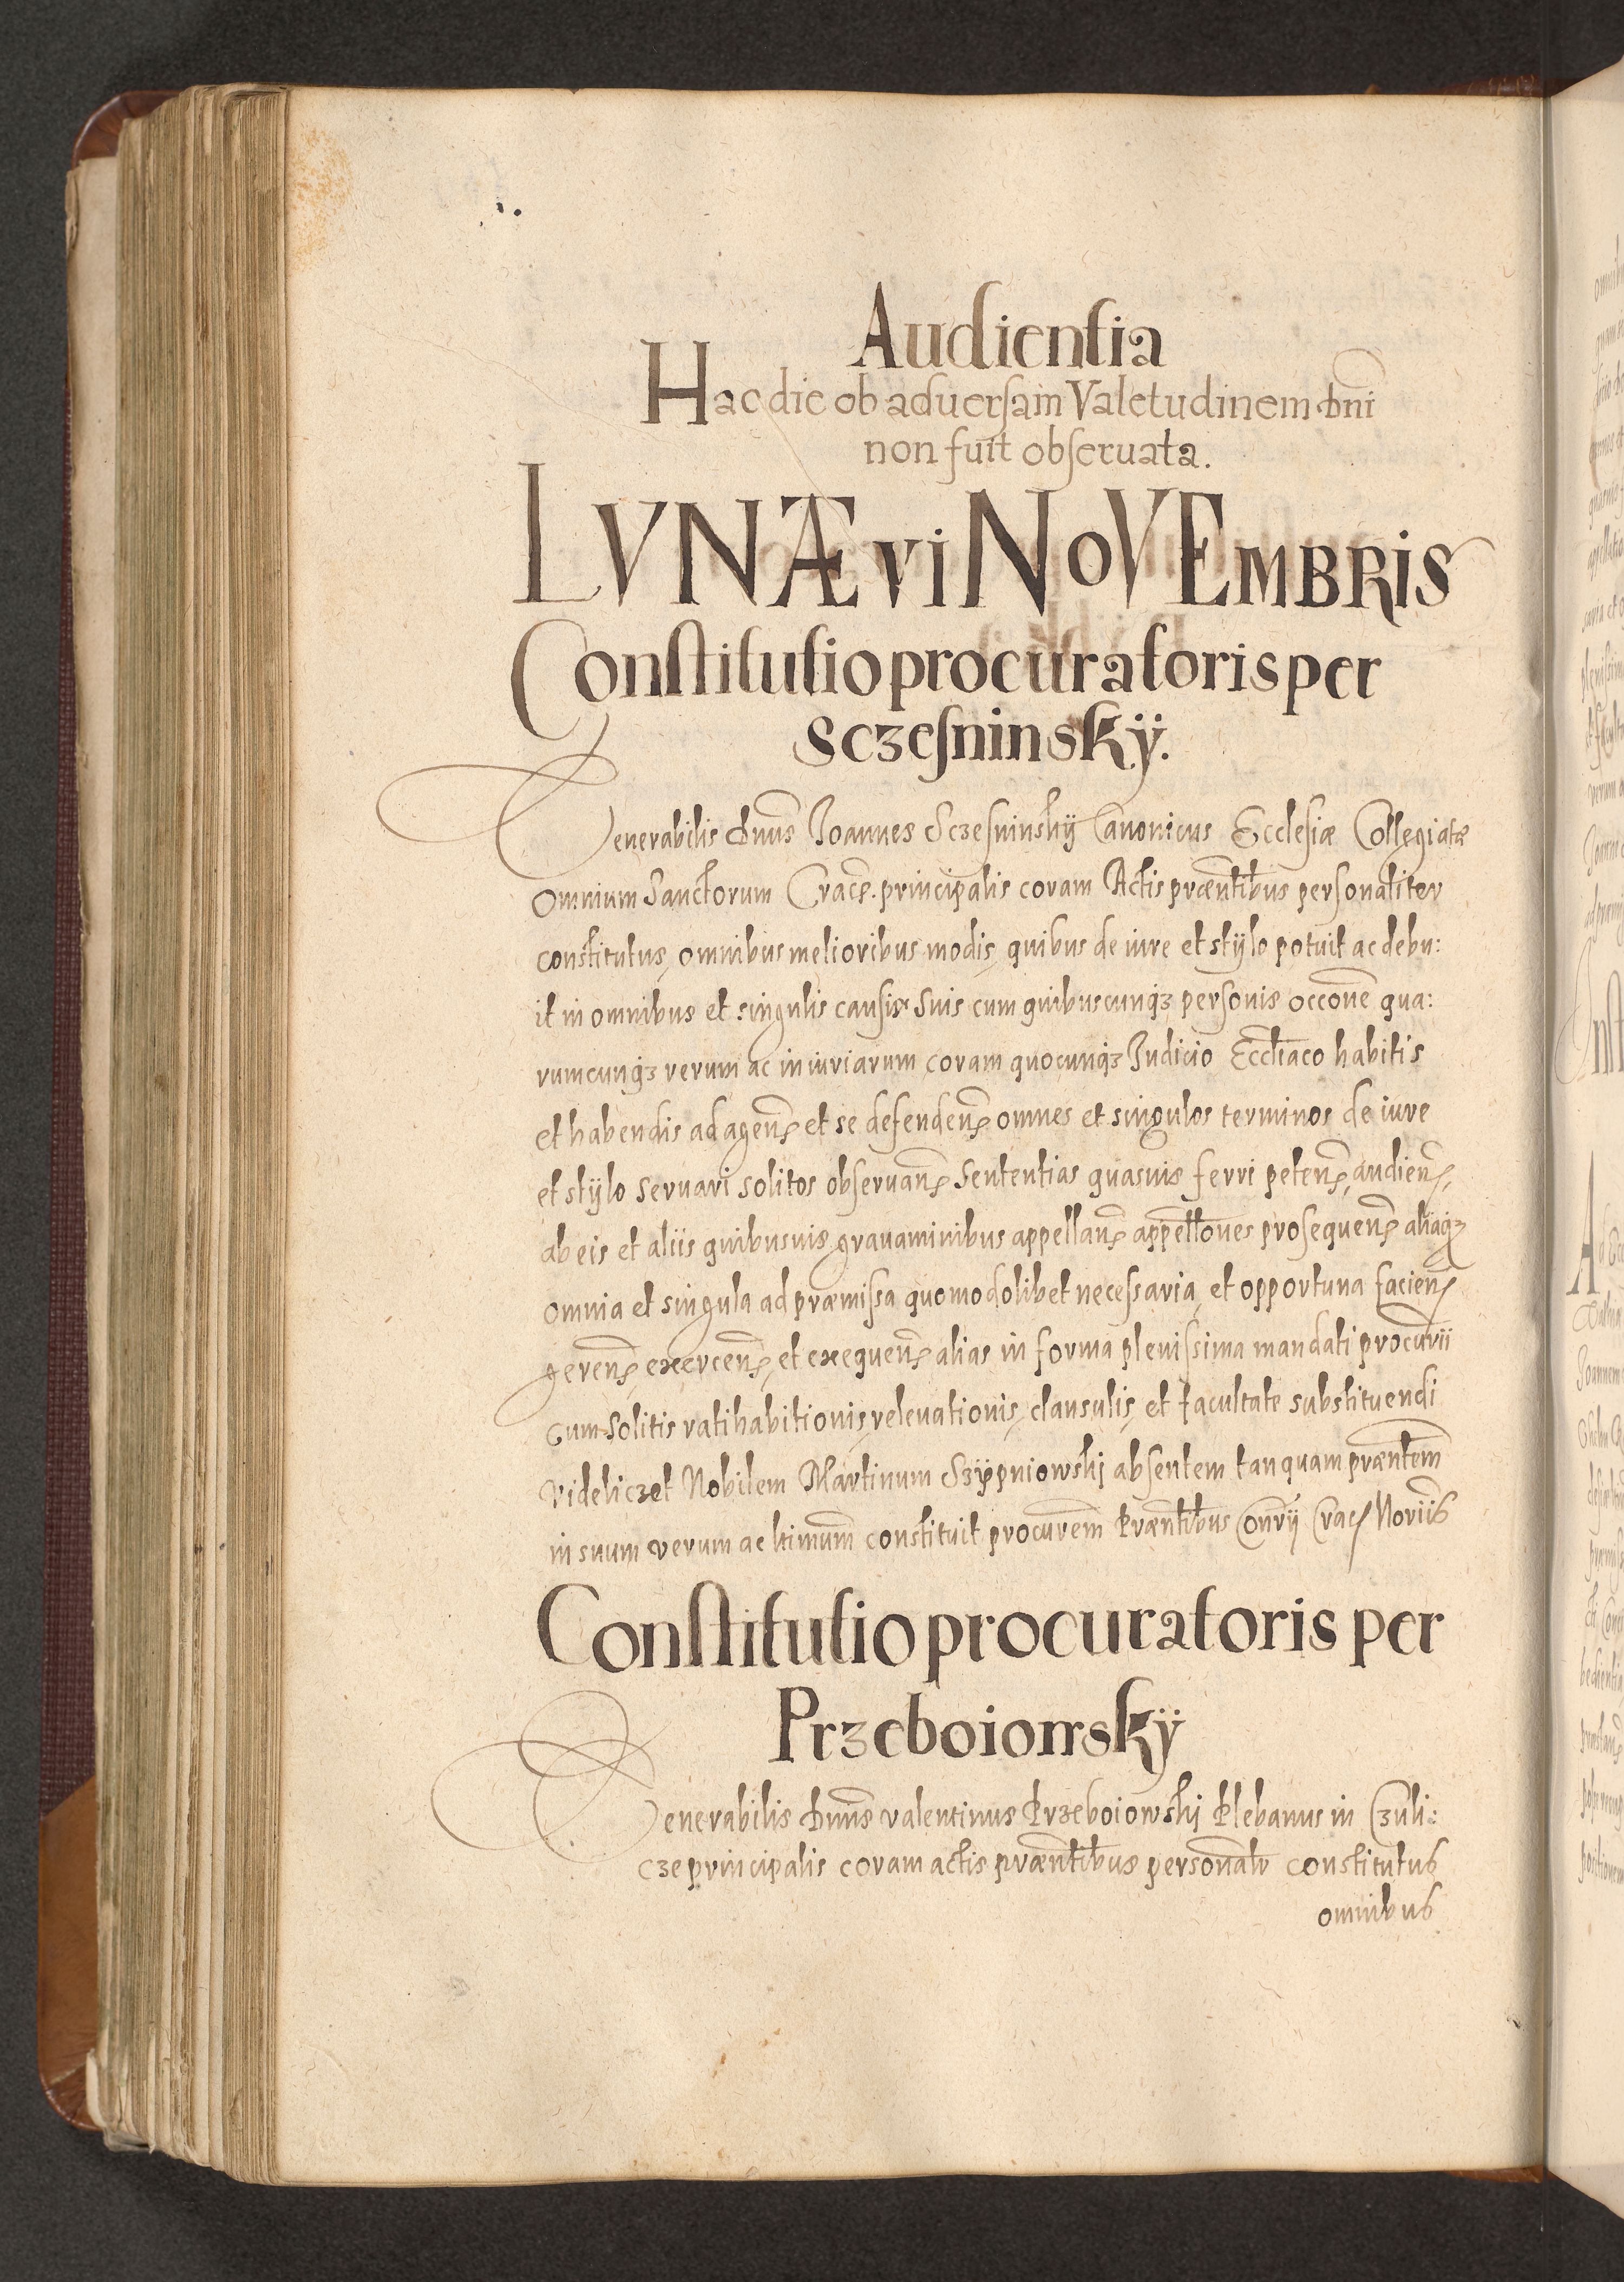 Audientia
Hac die ob aduersam Valetudinem dni
non fuit obseruata.
LVNÆ vi NOVEMBRIS
Constitutio procuratoris per
Sczesninskÿ.
Venerabilis dnus Joannes Sczesninskij Canonicus Ecclesiæ Collegiatæ
Omnium Sanctorum Crace. principalis coram Actis præntibus personaliter
constitutus, omnibus melioribus modis, quibus de iure et stÿlo potuit ac debu:
it in omnibus et singulis causis suis cum quibuscunqȝ personis occone qua:
rumcunqȝ rerum ac iniuriarum coram quocunqȝ Judicio Ecctiaco habitis
et habendis ad agenꝭ et se defendenꝭ omnes et singulos terminos de iure
et stÿlo seruari solitos obseruanꝭ sententias quasuis ferri petenꝭ, audienꝭ,
ab eis et aliis quibusuis grauaminibus appellanꝭ appellones prosequenꝭ aliaqȝ
omnia et singula ad præmissa quomodolibet necessaria, et opportuna facienꝭ
gerenꝭ, exercenꝭ, et exequenꝭ alias in forma plenissima mandati procurii
cum solitis ratihabitionis, releuationis, clausulis, et facultate substituendi
videliczet Nobilem Martinum Szÿpniowskj absentem tanquam præntem
in suum verum ac ltimum constituit procurem Præntibus Conrÿ Cracꝭ Noriis
Constitutio procuratoris per
Przeboiowskÿ
Venerabilis Dnus valentinus Przeboiowskj Plebanus in Czuli:
cze principalis coram actis præntibus personalr constitutus
omnibus